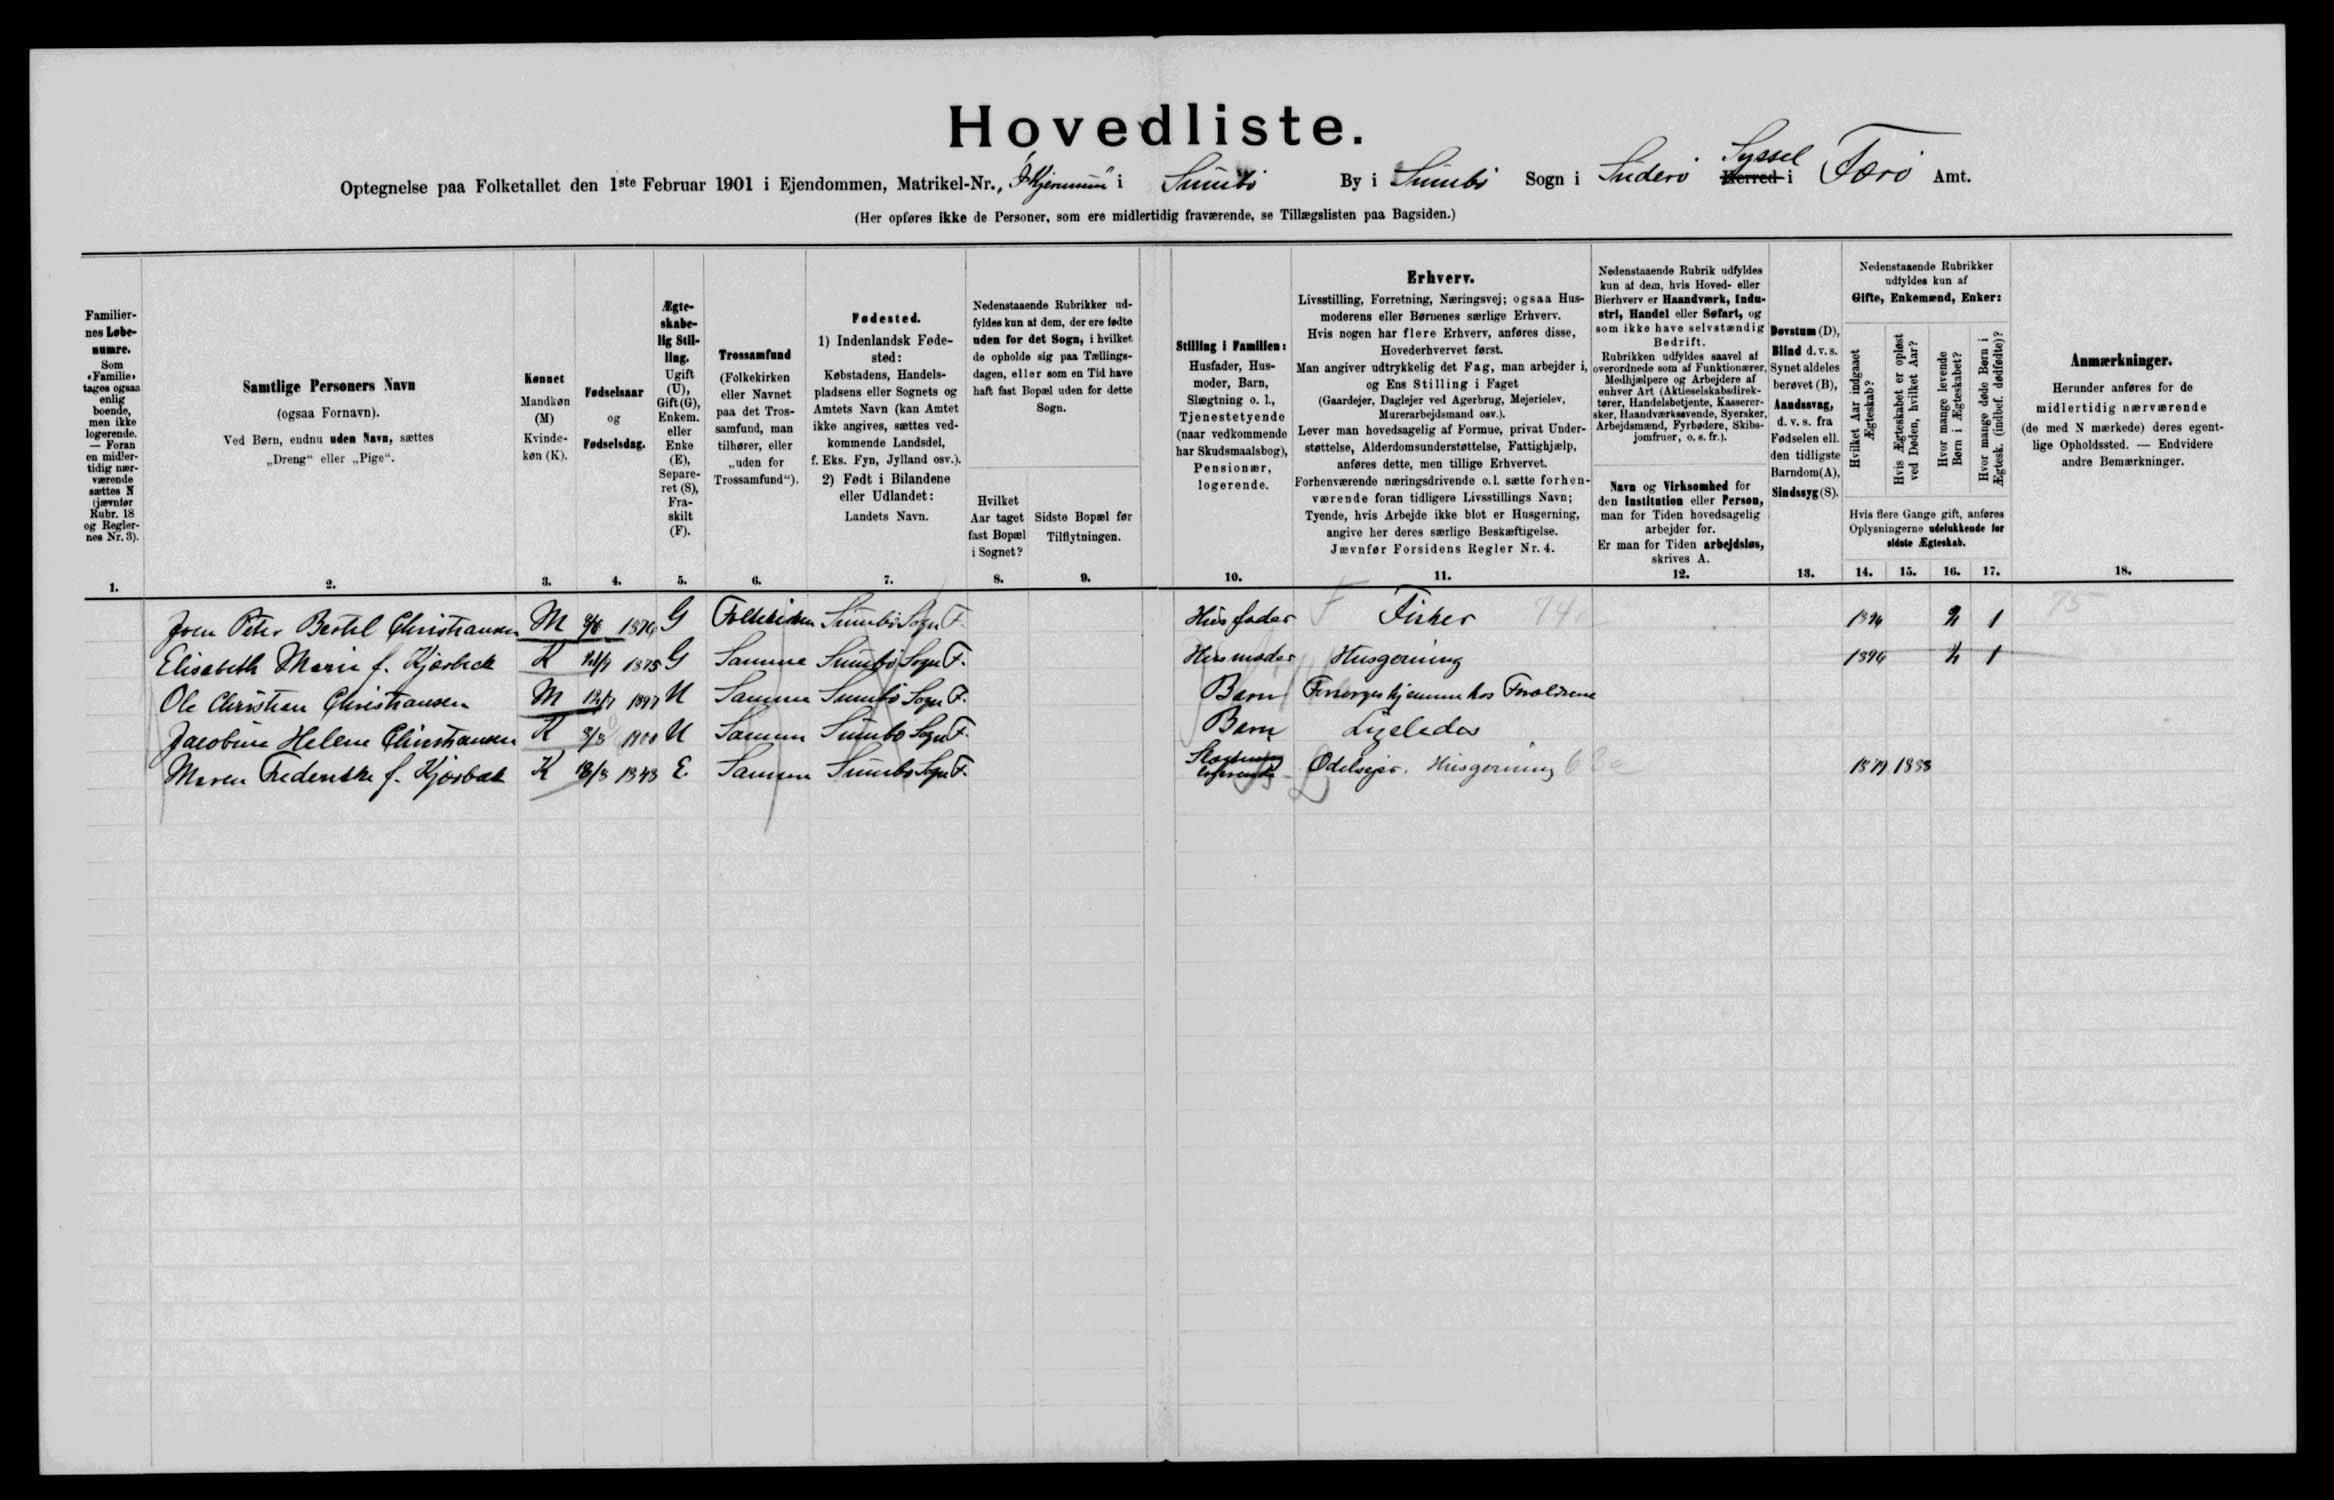 Hovedliste.
Optegnelse paa Folketallet den 1ste Februar 1901 i Ejendommen, Matrikel-Nr., i Sumbö By i Sumbö Sogn i Suderö Syssel Herred i Færö Amt.
(Her opføres ikke de Personer, som ere midlertidig fraværende, se Tillægslisten paa Bagsiden.)
Familier-
nes Løbe-
numre.
Som
«Familie»
tages ogsaa
enlig
boende,
men ikke
logerende.
— Foran
en midler-
tidig nær-
værende
sættes N
(jævnfør
Rubr. 18
og Regler-
nes Nr. 3).
1.
Samtlige Personers Navn
(ogsaa Fornavn).
Ved Børn, endnu uden Navn, sættes
„Dreng“ eller „Pige“.
2.
Kønnet
Mandkøn
(M)
Kvinde-
køn (K).
3.
Fødselsaar
og
Fødselsdag.
4.
Ægte-
skabe-
lig Stil-
ling.
Ugift
(U),
Gift (G),
Enkem.
eller
Enke
(E),
Separe-
ret (S),
Fra-
skilt
(F).
5.
Trossamfund
(Folkekirken
eller Navnet
paa det Tros-
samfund, man
tilhører, eller
„uden for
Trossamfund“).
6.
Fødested.
1) Indenlandsk Føde-
sted:
Købstadens, Handels-
pladsens eller Sognets og
Amtets Navn (kan Amtet
ikke angives, sættes ved-
kommende Landsdel,
f. Eks. Fyn, Jylland osv.).
2) Født i Bilandene
eller Udlandet:
Landets Navn.
7.
Nedenstaaende Rubrikker ud-
fyldes kun af dem, der ere fødte
uden for det Sogn, i hvilket
de opholde sig paa Tællings-
dagen, eller som en Tid have
haft fast Bopæl uden for dette
Sogn.
Hvilket
Aar taget
fast Bopæl
i Sognet?
8.
Sidste Bopæl før
Tilflytningen.
9.
Stilling i Familien:
Husfader, Hus-
moder, Barn,
Slægtning o. l.,
Tjenestetyende
(naar vedkommende
har Skudsmaalsbog),
Pensionær,
logerende.
10.
Erhverv.
Livsstilling, Forretning, Næringsvej; ogsaa Hus-
moderens eller Børnenes særlige Erhverv.
Hvis nogen har flere Erhverv, anføres disse,
Hovederhvervet først.
Man angiver udtrykkelig det Fag, man arbejder i,
og Ens Stilling i Faget
(Gaardejer, Daglejer ved Agerbrug, Mejerielev,
Murerarbejdsmand osv.).
Lever man hovedsagelig af Formue, privat Under-
støttelse, Alderdomsunderstøttelse, Fattighjælp,
anføres dette, men tillige Erhvervet.
Forhenværende næringsdrivende o. l. sætte forhen-
værende foran tidligere Livsstillings Navn;
Tyende, hvis Arbejde ikke blot er Husgerning,
angive her deres særlige Beskæftigelse.
Jævnfør Forsidens Regler Nr. 4.
11.
Nedenstaaende Rubrik udfyldes
kun af dem, hvis Hoved- eller
Bierhverv er Haandværk, Indu-
stri, Handel eller Søfart, og
som ikke have selvstændig
Bedrift.
Rubrikken udfyldes saavel af
overordnede som af Funktionærer,
Medhjælpere og Arbejdere af
enhver Art (Aktieselskabsdirek-
tører, Handelsbetjente, Kasserer-
sker, Haandværkssvende, Syersker,
Arbejdsmænd, Fyrbødere, Skibs-
jomfruer, o. s. fr.).
Navn og Virksomhed for
den Institution eller Person,
man for Tiden hovedsagelig
arbejder for.
Er man for Tiden arbejdsløs,
skrives A.
12.
Døvstum (D),
Blind d. v. s.
Synet aldeles
berøvet (B),
Aandssvag,
d. v. s. fra
Fødselen ell.
den tidligste
Barndom (A),
Sindssyg (S).
13.
Nedenstaaende Rubrikker
udfyldes kun af
Gifte, Enkemænd, Enker:
Hvilket Aar indgaaet
Ægteskab?
Hvis Ægteskabet er opløst
ved Døden, hvilket Aar?
Hvor mange levende
Børn i Ægteskabet?
Hvor mange døde Børn i
Ægtesk. (indbef. dødfødte)?
Hvis flere Gange gift, anføres
Oplysningerne udelukkende for
sidste Ægteskab.
14. 15. 16. 17.
Anmærkninger.
Herunder anføres for de
midlertidig nærværende
(de med N mærkede) deres egent-
lige Opholdssted. — Endvidere
andre Bemærkninger.
18.
Joen Peter Bertel Christiansen M G Folkekirken Sumbö Sogn F. Husfader Fisker 1 75
Elisabeth Marie f. Kjærbæk K 1875 G Samme Sumbö Sogn F. Husmoder Husgerning 1
Ole Christian Christiansen M 1897 U Samme Sumbö Sogn F. Barn Forsørges hjemme hos Forældrene
Jacobine Helene Christiansen K 1900 U Samme Sumbö Sogn F. Barn Ligeledes
Maren Frederikke f. Kjærbæk K 1848 E. Samme Sumbö Sogn F. Slægtning logerende Odelsejer. Husgerning 1888